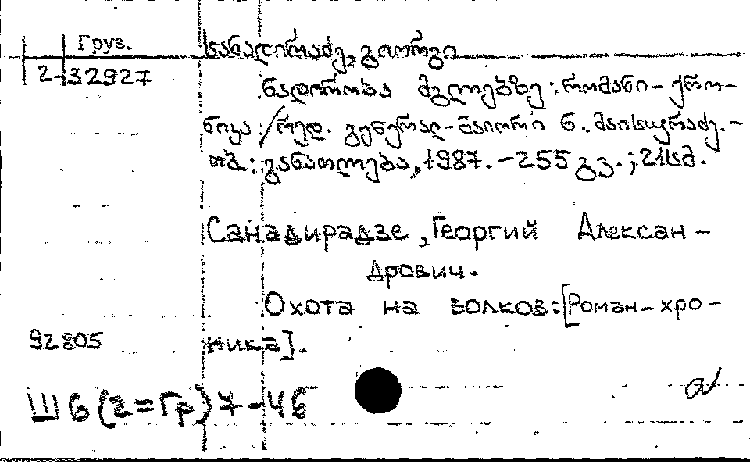 Груз.
2-32927
სანადირაძე, გიორგი
ნადირობა მგლებზე : რომანი-ქრო-
ნიკა : / რედ. გენერალ-მაიორი ნ. მაისურაძე. -
თბ.: განათლება, 1987. - 255 გვ. ; 21სმ.
Санадирадзе, Георгий Алексан-
дрович.
Охота на волков: [Роман-хро-
92805 ника].
Ш6(2=Гр)7-46